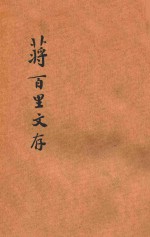 蒋百里文存